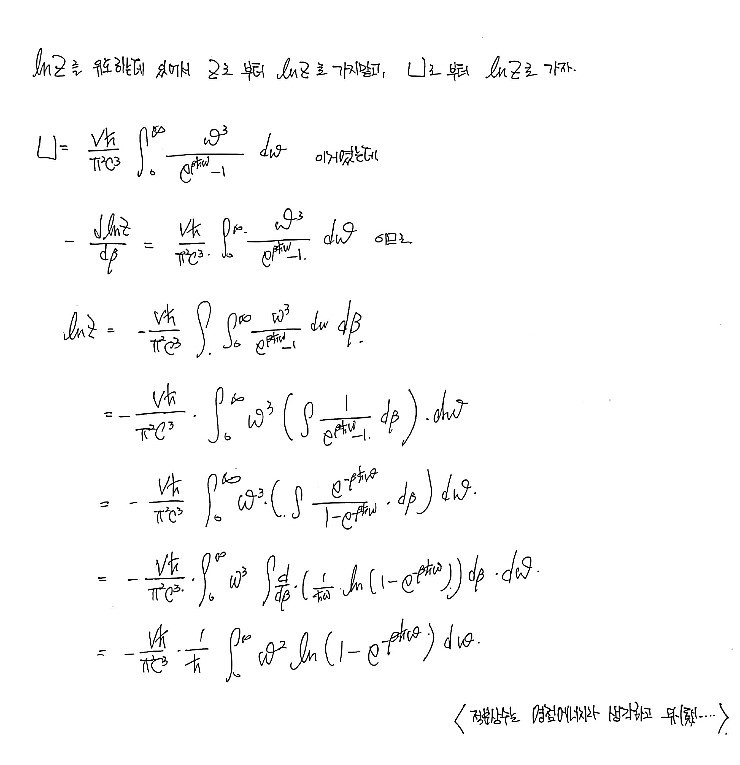 lnZ를 유도하는데 있어서 Z로 부터 lnZ로 가지말고, U로 부터 lnZ로 가자.
U = Vħ/π²c³ ∫₀^∞ ω³/(e^{βħω}-1) dω 이거였는데
- dlnZ/dβ = Vħ/π²c³ ∫₀^∞ ω³/(e^{βħω}-1) dω 이므로
lnZ = - Vħ/π²c³ ∫ ∫₀^∞ ω³/(e^{βħω}-1) dω dβ.
= - Vħ/π²c³ · ∫₀^∞ ω³ (∫ 1/(e^{βħω}-1) dβ) · dω
= - Vħ/π²c³ ∫₀^∞ ω³ · (∫ e^{-βħω}/(1-e^{-βħω}) · dβ) dω.
= - Vħ/π²c³ · ∫₀^∞ ω³ ∫ d/dβ · (1/ħω ln(1-e^{-βħω})) dβ · dω.
= - Vħ/π²c³ · 1/ħ ∫₀^∞ ω² ln(1-e^{-βħω}) dω.
〈적분상수는 영점에너지라 생각하고 무시했....〉